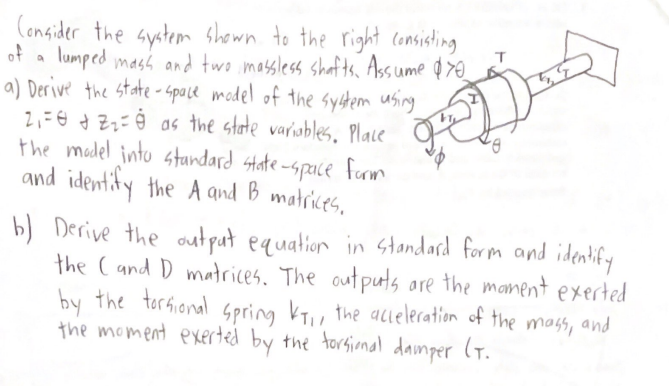 Consider the system shown to the right consisting
of a lumped mass and two massless shafts. Assume ϕ>θ
a) Derive the state-space model of the system using
z₁=θ & z₂=θ̇ as the state variables. Place
the model into standard state-space form
and identify the A and B matrices.
T
I
k_T₁
k_T₂, C_T
θ
ϕ
b) Derive the output equation in standard form and identify
the C and D matrices. The outputs are the moment exerted
by the torsional spring k_T₁, the acceleration of the mass, and
the moment exerted by the torsional damper C_T.